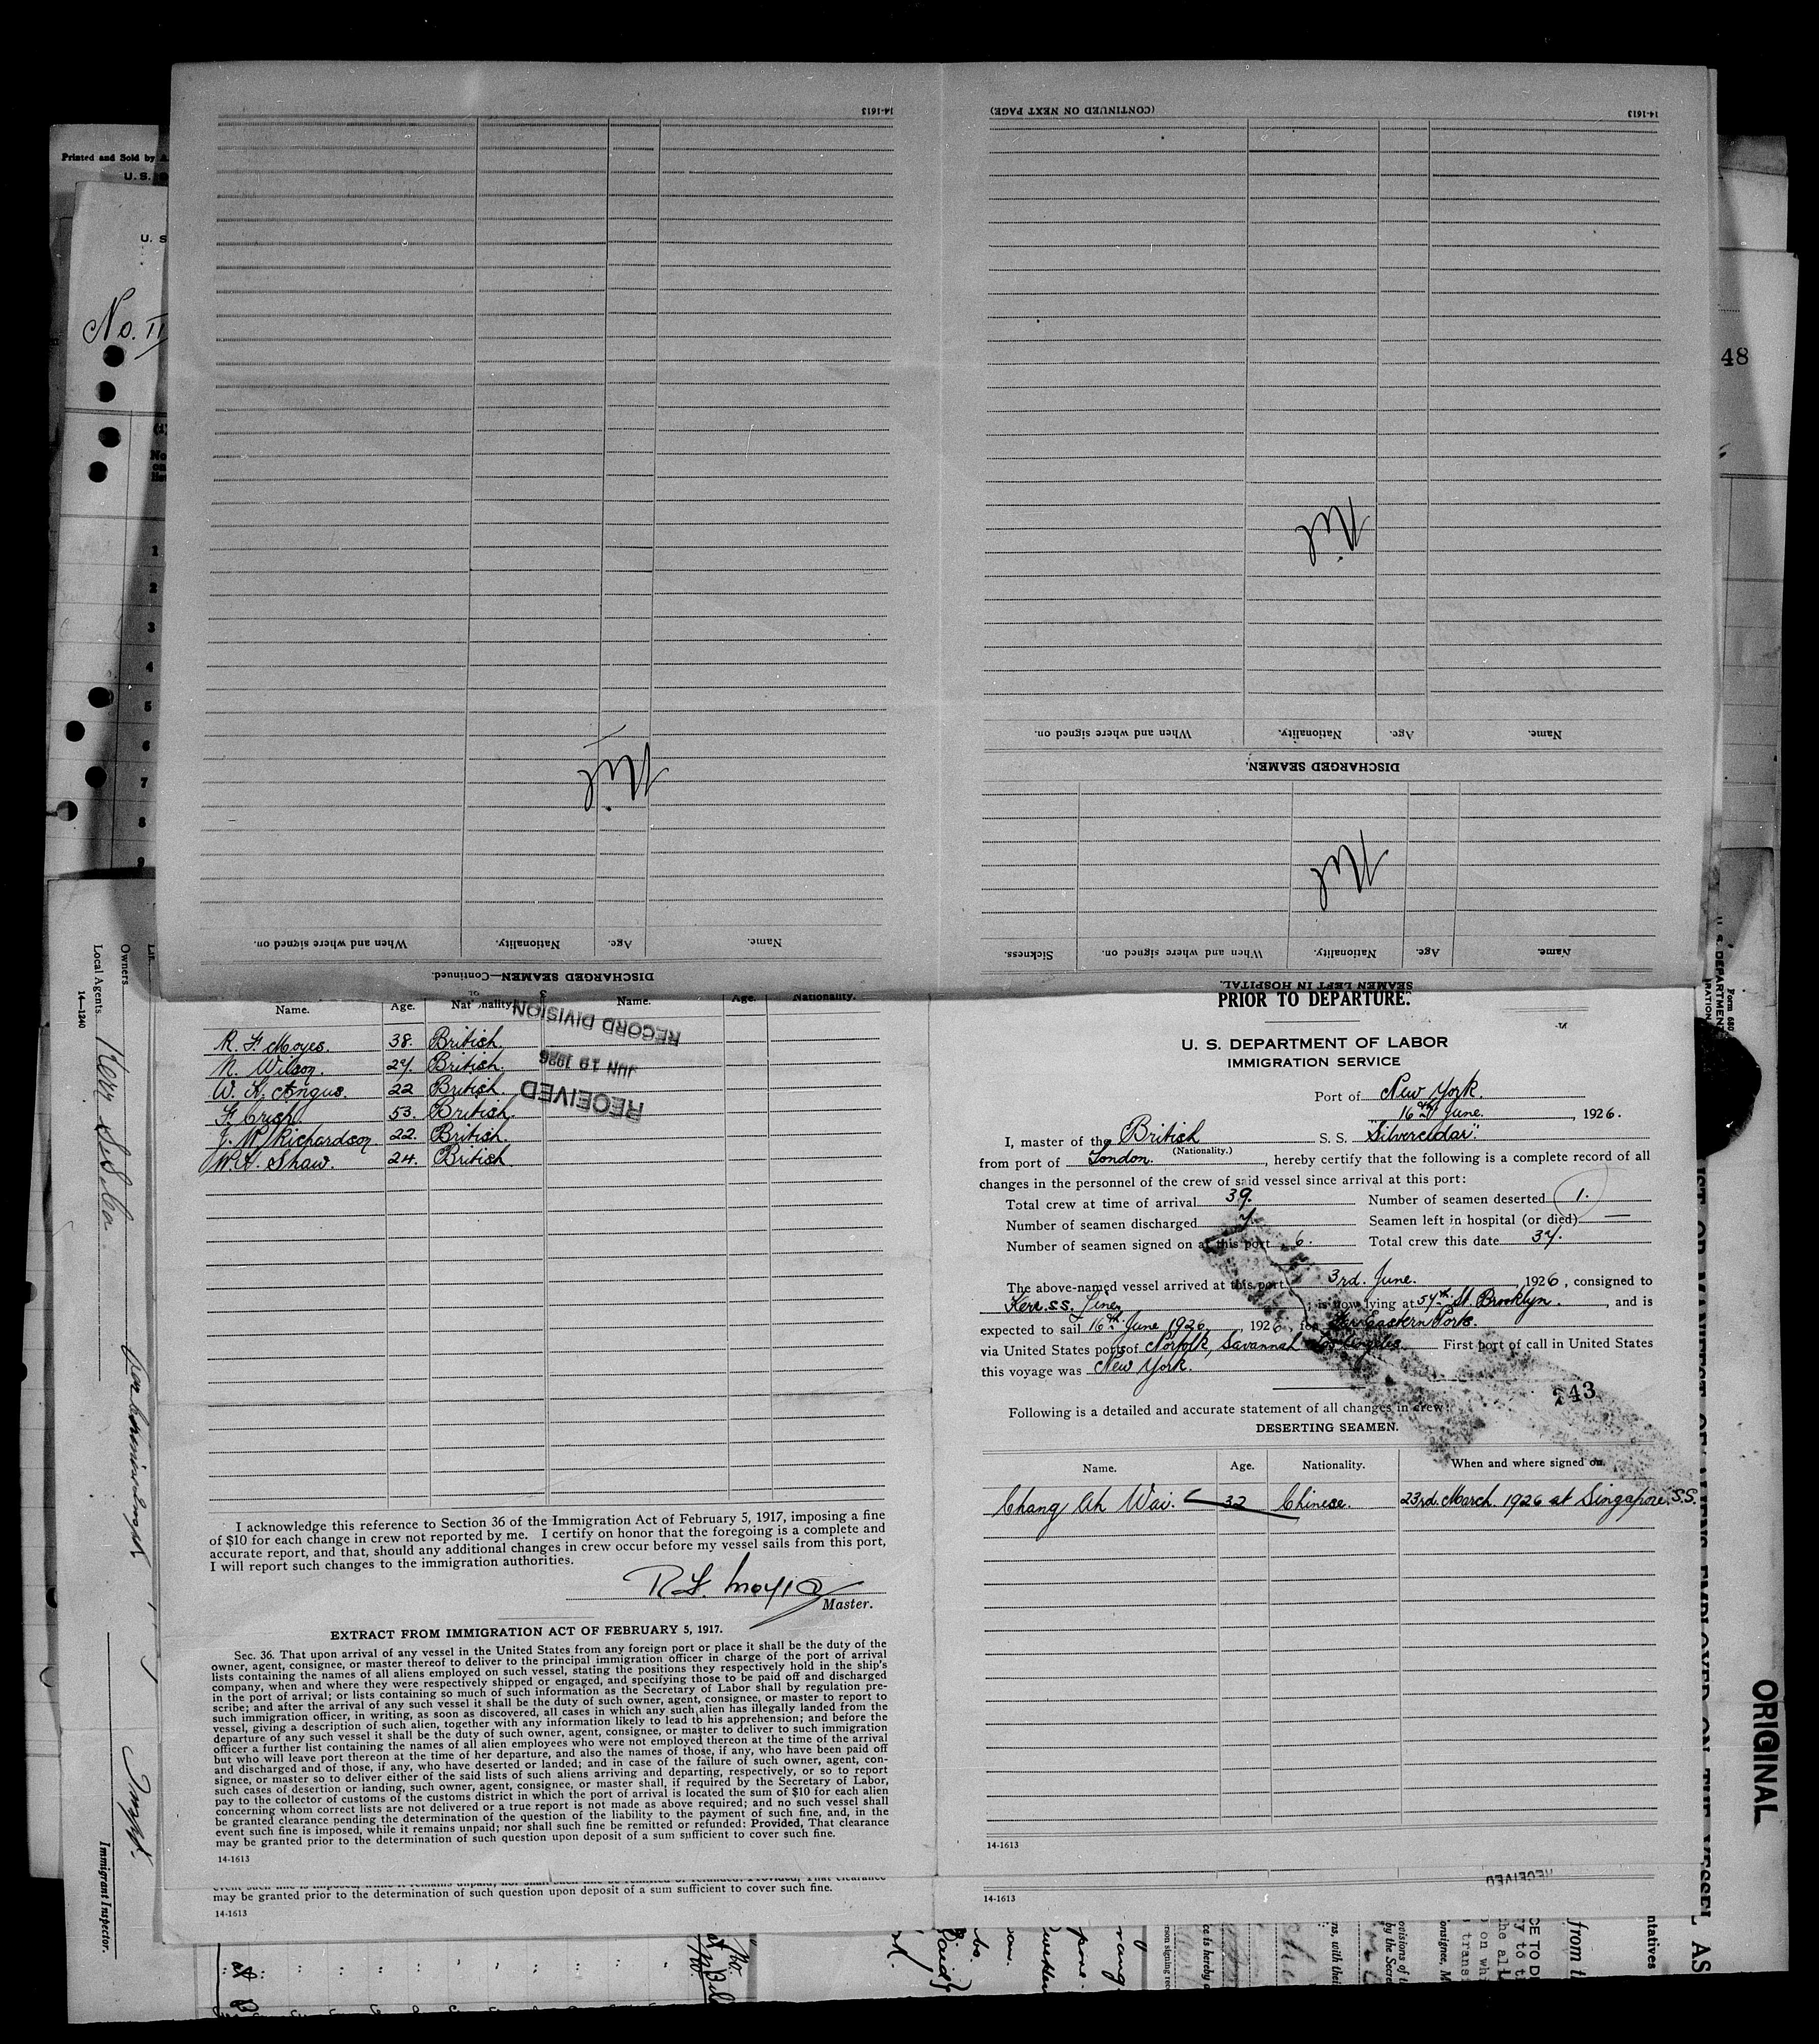 14-1613
(CONTINUED ON NEXT PAGE)
14-1613
Printed and Sold by
U. S.
U. S
No. II
48
Nil
Nil
Name.
Age.
Nationality.
When and where signed on.
DISCHARGED SEAMEN.
Nil
Name.
Age.
Nationality.
When and where signed on.
Sickness.
SEAMEN LEFT IN HOSPITAL.
Name.
Age.
Nationality.
When and where signed on.
DISCHARGED SEAMEN—Continued.
1
2
3
4
5
6
7
8
9
Name. Age. Nationality. Name. Age. Nationality.
R. F. Moyes. 38. British.
N. Wilson. 27. British.
W. K. Angus. 22 British.
F. Crisp. 53. British.
J. M. Richardson 22. British.
W. A. Shaw. 24. British.
RECEIVED
JUN 19 1926
RECORD DIVISION
I acknowledge this reference to Section 36 of the Immigration Act of February 5, 1917, imposing a fine
of $10 for each change in crew not reported by me. I certify on honor that the foregoing is a complete and
accurate report, and that, should any additional changes in crew occur before my vessel sails from this port,
I will report such changes to the immigration authorities.
R. F. Moyes
Master.
EXTRACT FROM IMMIGRATION ACT OF FEBRUARY 5, 1917.
Sec. 36. That upon arrival of any vessel in the United States from any foreign port or place it shall be the duty of the
owner, agent, consignee, or master thereof to deliver to the principal immigration officer in charge of the port of arrival
lists containing the names of all aliens employed on such vessel, stating the positions they respectively hold in the ship's
company, when and where they were respectively shipped or engaged, and specifying those to be paid off and discharged
in the port of arrival; or lists containing so much of such information as the Secretary of Labor shall by regulation pre-
scribe; and after the arrival of any such vessel it shall be the duty of such owner, agent, consignee, or master to report to
such immigration officer, in writing, as soon as discovered, all cases in which any such alien has illegally landed from the
vessel, giving a description of such alien, together with any information likely to lead to his apprehension; and before the
departure of any such vessel it shall be the duty of such owner, agent, consignee, or master to deliver to such immigration
officer a further list containing the names of all alien employees who were not employed thereon at the time of the arrival
but who will leave port thereon at the time of her departure, and also the names of those, if any, who have been paid off
and discharged and of those, if any, who have deserted or landed; and in case of the failure of such owner, agent, con-
signee, or master so to deliver either of the said lists of such aliens arriving and departing, respectively, or so to report
such cases of desertion or landing, such owner, agent, consignee, or master shall, if required by the Secretary of Labor,
pay to the collector of customs of the customs district in which the port of arrival is located the sum of $10 for each alien
concerning whom correct lists are not delivered or a true report is not made as above required; and no such vessel shall
be granted clearance pending the determination of the question of the liability to the payment of such fine, and, in the
event such fine is imposed, while it remains unpaid; nor shall such fine be remitted or refunded: Provided, That clearance
may be granted prior to the determination of such question upon deposit of a sum sufficient to cover such fine.
14-1613
may be granted prior to the determination of such question upon deposit of a sum sufficient to cover such fine.
14-1613
PRIOR TO DEPARTURE.
U. S. DEPARTMENT OF LABOR
IMMIGRATION SERVICE
Port of New York.
16th June. , 1926.
I, master of the British S. S. "Silvercedar".
(Nationality.)
from port of London. , hereby certify that the following is a complete record of all
changes in the personnel of the crew of said vessel since arrival at this port:
Total crew at time of arrival 39. Number of seamen deserted 1.
Number of seamen discharged 7. Seamen left in hospital (or died) —
Number of seamen signed on at this port 6. Total crew this date 37.
The above-named vessel arrived at this port 3rd. June. , 1926, consigned to
Kerr. SS. Lines ; is now lying at 57th St. Brooklyn. , and is
expected to sail 16th June 1926 , 1926, for Far Eastern Ports.
via United States ports of Norfolk, Savannah Los Angeles. First port of call in United States
this voyage was New York.
243
Following is a detailed and accurate statement of all changes in crew:
DESERTING SEAMEN.
Name. Age. Nationality. When and where signed on.
Chang Ah Wai. 32 Chinese. 23rd. March. 1926 at Singapore. S.S.
14-1613
RECEIVED
14-1613
Owners
Local Agents
14—1240
Immigrant Inspector.
Form 680
U. S. DEPARTMENT
ORIGINAL